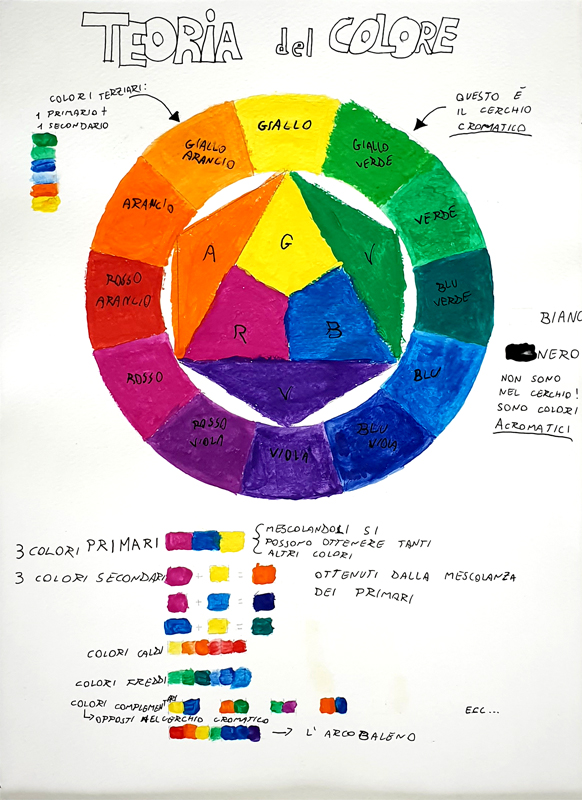 TEORIA del COLORE
COLORI TERZIARI:
1 PRIMARIO +
1 SECONDARIO
QUESTO È
IL CERCHIO
CROMATICO
GIALLO
GIALLO
ARANCIO
GIALLO
VERDE
ARANCIO
VERDE
A
G
V
ROSSO
ARANCIO
BLU
VERDE
R
B
BIANC
NERO
NON SONO
NEL CERCHIO!
SONO COLORI
ACROMATICI
ROSSO
BLU
Vi
ROSSO
VIOLA
VIOLA
BLU
VIOLA
3 COLORI PRIMARI
MESCOLANDOLI SI
POSSONO OTTENERE TANTI
ALTRI COLORI
3 COLORI SECONDARI
+ =
OTTENUTI DALLA MESCOLANZA
DEI PRIMARI
+ =
+ =
COLORI CALDI
COLORI FREDDI
COLORI COMPLEMENTARI
ECC...
OPPOSTI NEL CERCHIO CROMATICO
L'ARCOBALENO